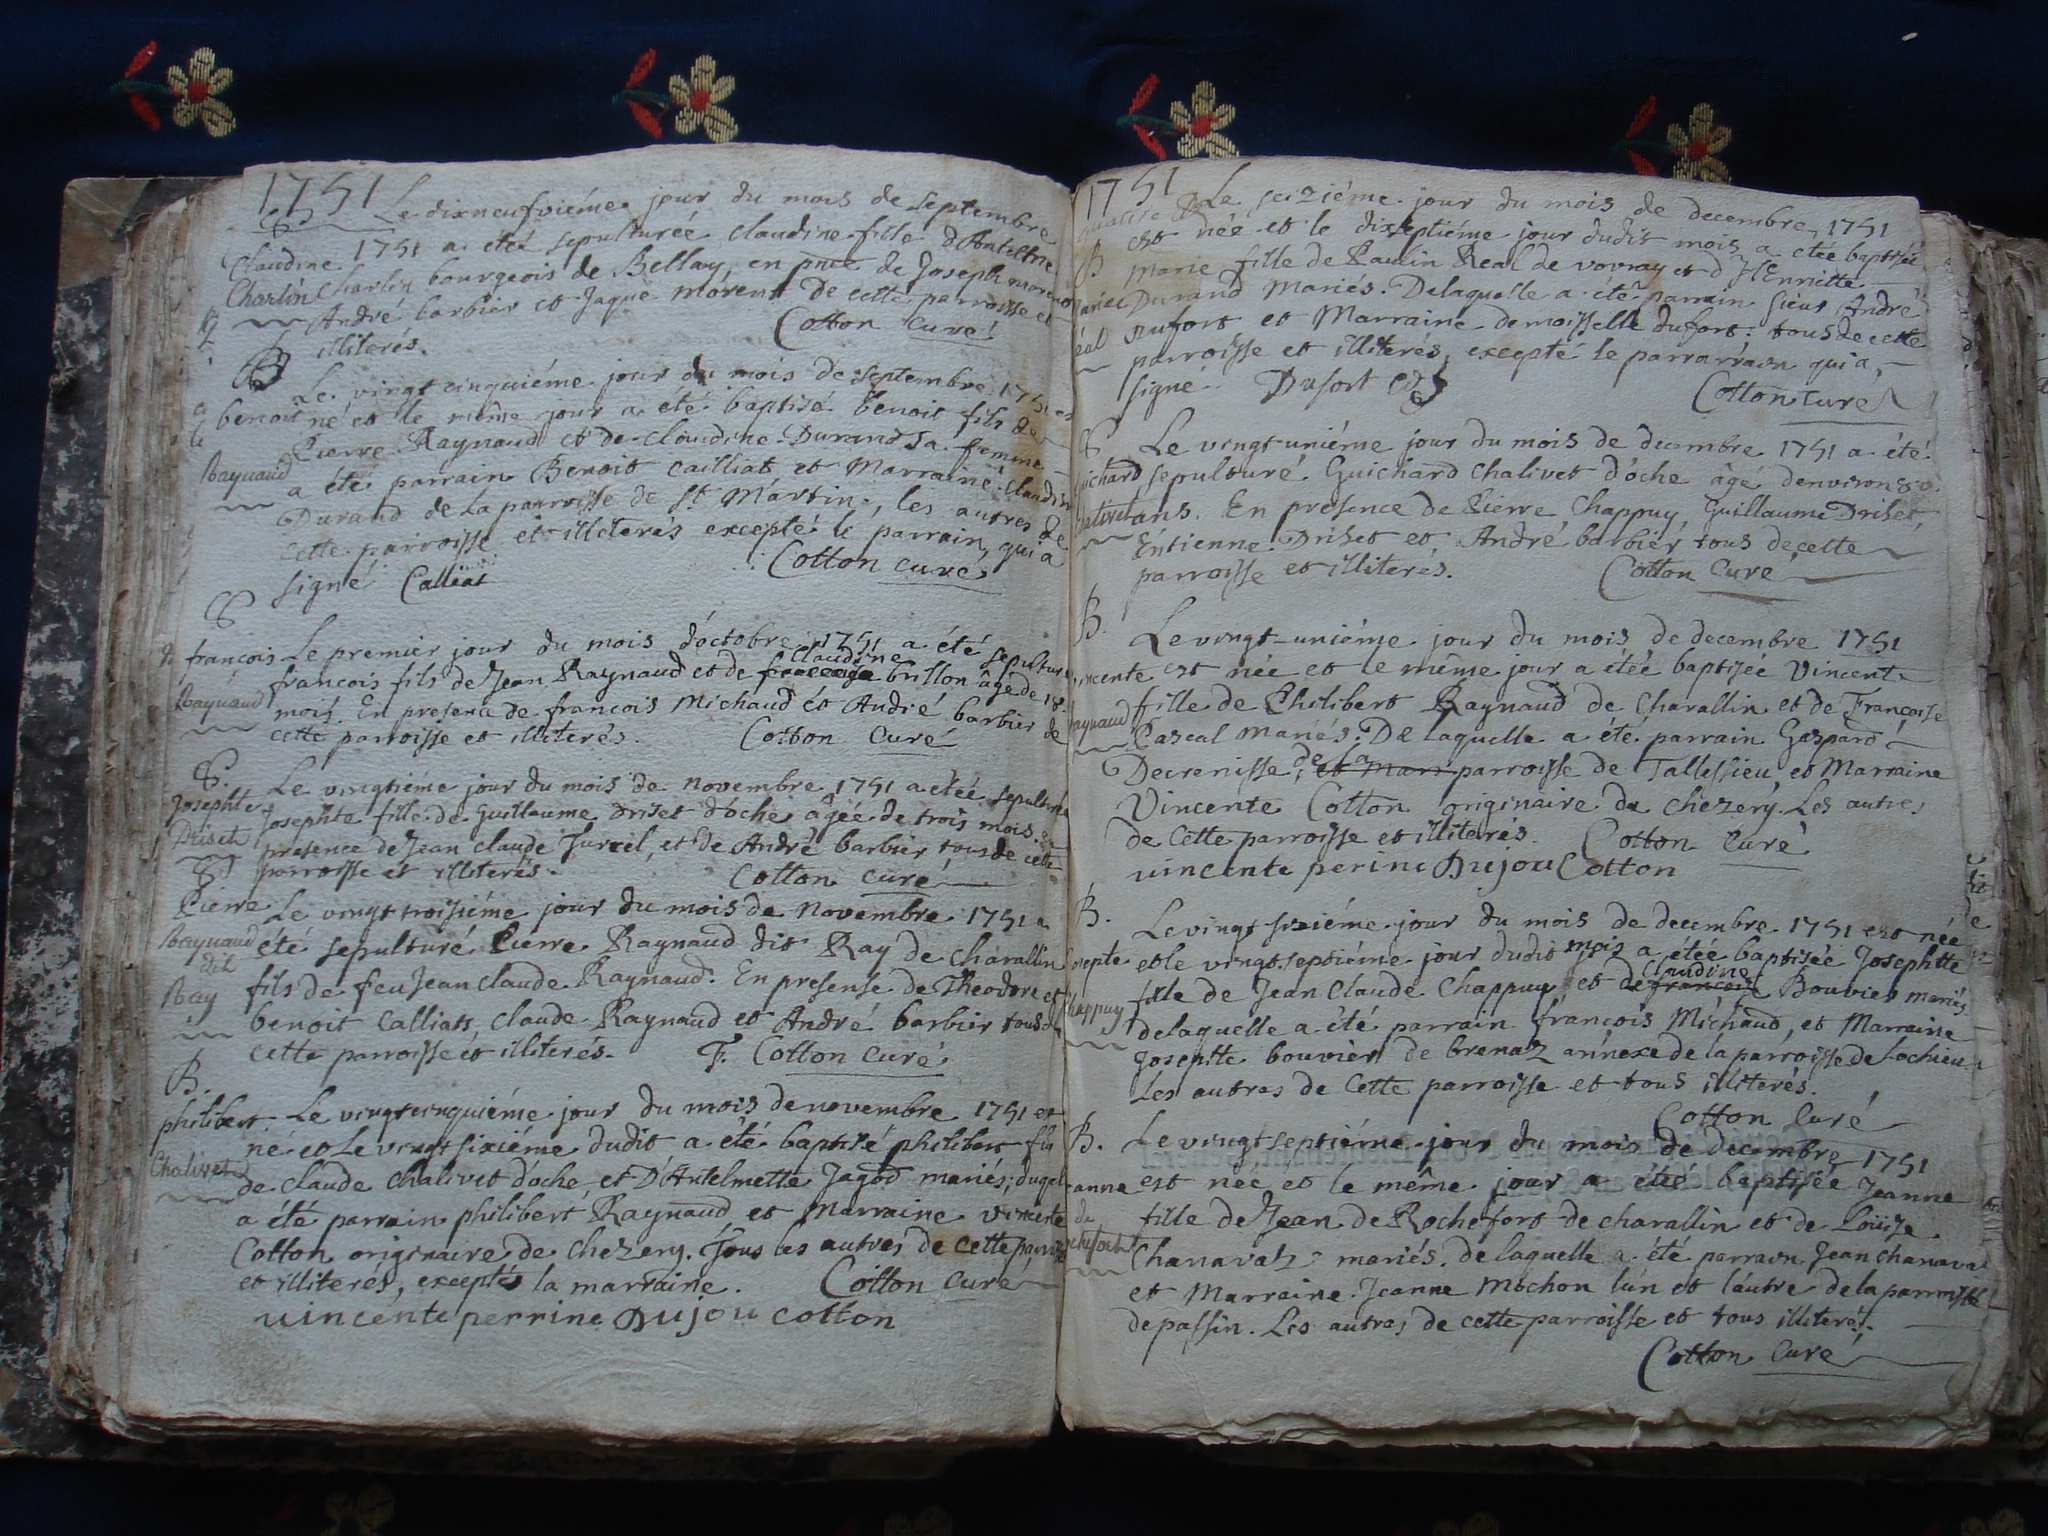 1751
S Le dixneufviéme jour du mois de septembre
Claudine 1751 a eteé sepulturée claudine fille d'Antelme
Charlin Charlin bourgeois de Bellay, en pnce de Joseph morens
André barbier et Jaque morens De cette parroisse et
illiterés. Cotton curé
B Le vingt cinquiéme jour du mois de septembre 1751 est
benoit né et le même jour a eté baptisé benoit fils de
Raynaud Pierre Raynaud et de claudine Durand sa femme
a été parrain Benoit cailliat et Marraine Claudine
Durand de la parroisse de St Martin, les autres de
cette parroisse et illiterés excepté le parrain qui a
signé Calliat Cotton curé
S
francois Le premier jour du mois d'octobre 1751 a été sepulturé
claudine
Raynaud francois fils de Jean Raynaud et de brillon âgé de 18
mois. En presence de francois Michaud et André barbier de
cette parroisse et illiterés. Cotton Curé
S. Le vingtiéme jour du mois de novembre 1751 a eteé sepulturée
Josephte Josephte fille de Guillaume Driset d'oche âgée de trois mois en
Driset presence de Jean claude Jurcil, et de André barbier tous de cette
parroisse et illiterés. Cotton curé
S
Pierre Le vingt troisiéme jour du mois de novembre 1751 a
Raynaud été sepulturé Pierre Raynaud dit Ray de charallin
dit
Ray fils de feu Jean claude Raynaud. En presense de Theodore et
benoit Calliat, claude Raynaud et André barbier tous de
cette parroisse et illiterés. F. Cotton curé
B.
philibert Le vingt cinquiéme jour du mois de novembre 1751 est
né et Le vingt sixiéme dudit a été baptisé philibert fils
Chalivet de claude chalivet d'oche et D'Antelmette Jagod mariés; duquel
a été parrain philibert Raynaud et Marraine vincente
Cotton originaire de Chezery. Tous les autres de cette parroisse
et illiterés, exceptés la marraine. Cotton curé
vincente perrine Dujou cotton
1751
Le seiziéme jour du mois de decembre 1751
est née et le dixseptiéme jour dudit mois a eteé baptisée
B Marie fille de Paulin Real de vovray et d'Henriette
Marie Durand Mariés. Delaquelle a été parrain sieur André
Réal Dufort et Marraine demoisselle dufort: tous de cette
parroisse et illiterés, excepté le parrarrain qui a
signé. Dufort Cotton curé
S Le vingt-uniéme jour du mois de decembre 1751 a été
Guichard sepulturé Guichard Chalivet d'oche âgé d'environ 80
Chalivet ans. En presence de Pierre Chappuy, Guillaume Driset,
Entienne Driset et André barbier, tous de cette
parroisse et illiterés. Cotton Curé
B. Le vingt-uniéme jour du mois de decembre 1751
vincente est née et le même jour a étéé baptisée Vincente
Raynaud fille de Philibert Raynaud de Charallin et de Francoise
Pascal mariés: De laquelle a été parrain Gaspard
Decrenisse, de la et Marr parroisse de Tallessieu, et Marraine
Vincente Cotton originaire de chezery. Les autres
de Cette parroisse et illiterés. Cotton Curé
vincente perine Dujou Cotton
B. Le vingt sixiéme jour du mois de decembre 1751 est née
Josepte et le vingt septiéme jour dudit mois a étéé baptisée Josephtte
Claudine
Chappuy fille de Jean Claude Chappuy et de francoise Bouvier mariés
delaquelle a été parrain françois Michaud, et Marraine
Josephtte bouvier de brenaz annexe de la parroisse de Lochieu
Les autres de Cette parroisse et tous illiterés.
Cotton Curé
B. Le vingt septiéme jour du mois de decembre 1751
Jeanne est née et le même jour a étéé baptisée Jeanne
de fille de Jean de Rochefort de charallin et de Loüise
Rochefort Chanavatz mariés. de laquelle a été parrain Jean chanavat
et Marraine Jeanne Mochon l'un et l'autre de la parroisse
de passin. Les autres de cette parroisse et tous illiterés.
Cotton Curé